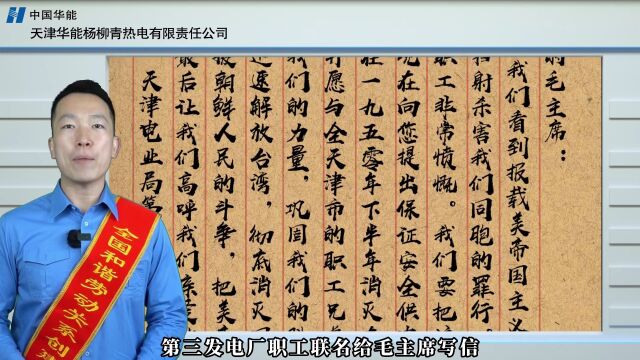 中国华能
天津华能杨柳青热电有限责任公司
毛主席：
我们看到报载美帝国主义
扫射杀害我们同胞的罪行
职工非常愤慨。我们要把
现在向您提出保证安全供
在一九五零年下半年消灭
愿与全天津市的职工兄
我们的力量，巩固我们的
速解放台湾，彻底消灭
援朝鲜人民的斗争，把美
最后让我们高呼我们
天津电业局第
全国和谐劳动关系创建
第三发电厂职工联名给毛主席写信